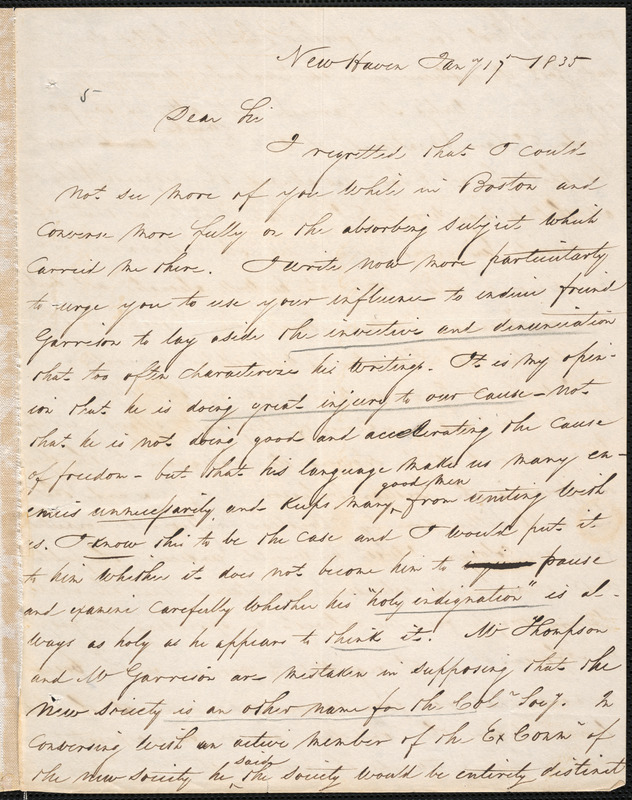 New Haven Jany 17th 1835
5
Dear Sir
I regretted that I could
not see more of you while in Boston and
converse more fully on the absorbing subject which
carried me there. I write now more particularly
to urge you to use your influence to induce friend
Garrison to lay aside the invective and denunciation
that too often characterizes his writings. It is my opin-
ion that he is doing great injury to our cause - not
that he is not doing good and accelerating the cause
of freedom - but that his language makes us many en-
emies unnecessarily and keeps many good men from uniting with
us. I know this to be the case and I would put it
to him whether it does not become him to pause
and examine carefully whether his "holy indignation" is al-
ways as holy as he appears to think it. Mr Thompson
and Mr Garrison are mistaken in supposing that the
new society is an other name for the Col" Socy. In
conversing with an active member of the Ex Comm" of
the new society he said the society would be entirely distinct